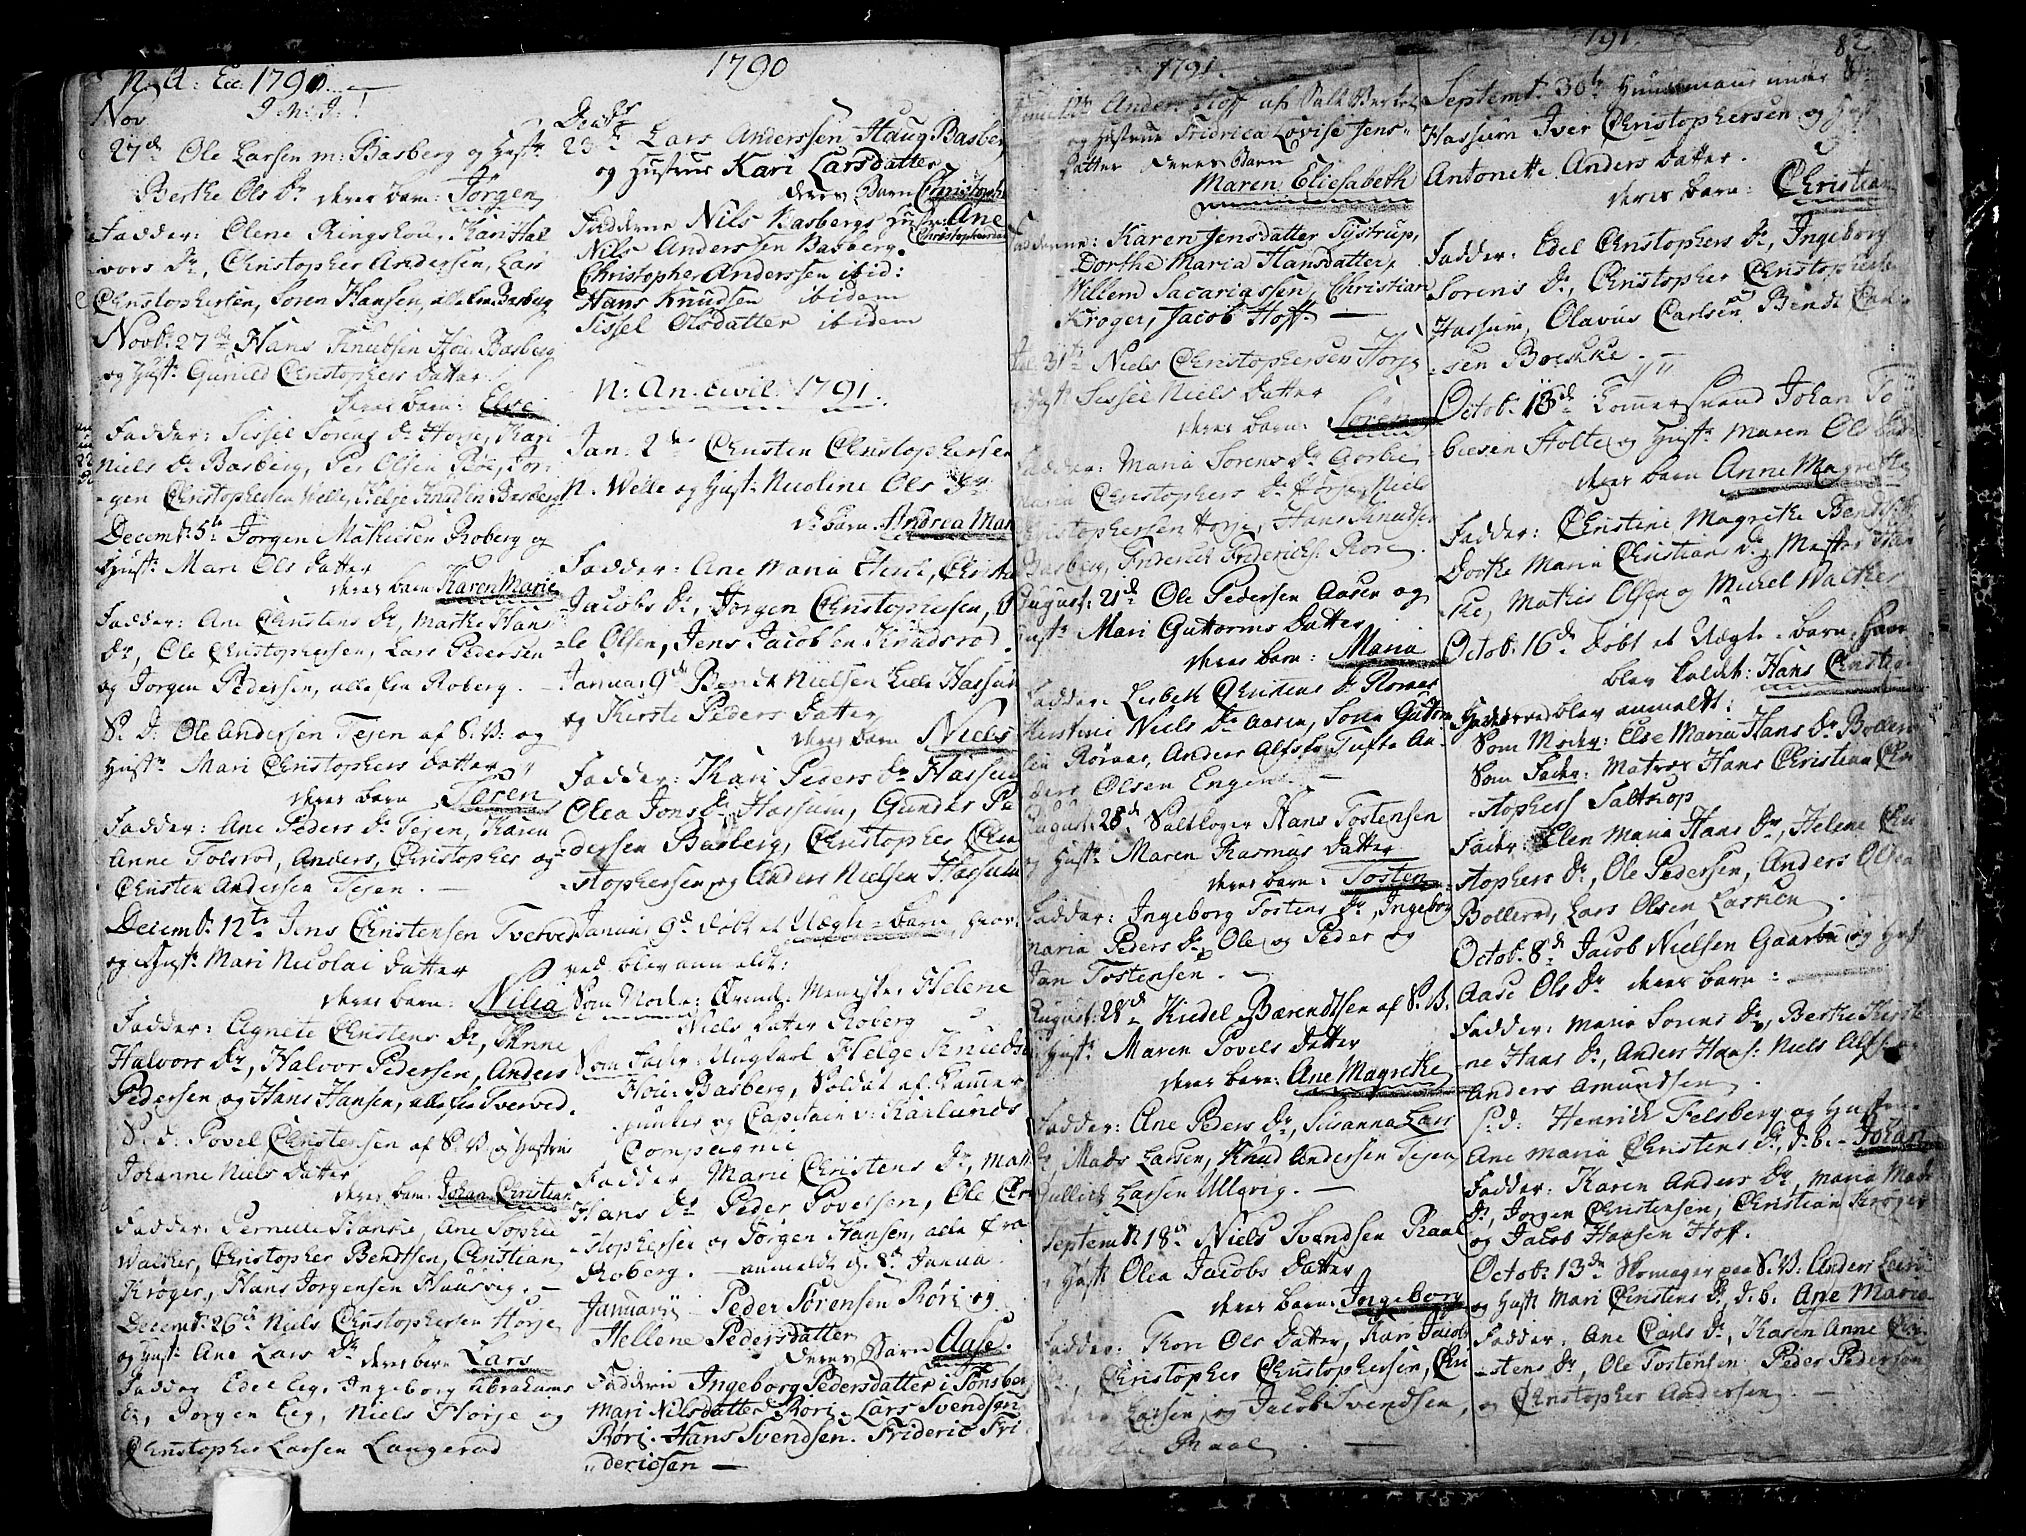 N. A: Ec: 1790.
J. N. J.!
Nov
27de Ole Larsen m: Basberg og Hustr:
Berthe Ols Dr. deres barn: Jörgen
Fadder: Olene Ringshou, Kari Hal
vors Dr, Christopher Andersen, Lars
Christophersen, Soren Hansen, alle fra Basberg
Novb: 27de Hans Knudsen Hou Basberg
og Hustr: Gunild Christophers datter
deres barn: Else
Fadder: Sissel Sorens Dr Horje, Kari
Niels Dr Basberg, Per Olsen Röe, Jör-
gen Christophersen Welle, Helge Knudsen Basberg
Decembr: 5te Jorgen Mathiesen Roberg og
Hustr: Mari Ols datter
deres barn Karen Marie
Fadder: Ane Christens Dr, Marthe Hans
Dr, Ole Christophersen, Lars Pedersen
og Jorgen Pedersen, alle fra Roberg.
S. D: Ole Andersen Tejen af S. V: og
Hustr: Mari Christophers datter
deres barn Tören
Fadder: Ane Peders Dr Tejen, Karen
Anne Tolsrod, Anders, Christopher og
Christen Andersen Tejen.
Decembr: 12te Jens Christensen Tverved
og Hustr: Mari Nicolai datter
deres barn: Nilia
Fadder: Agnete Christens Dr, Anne
Halvors Dr, Halvor Pedersen, Anders
Pedersen og Hans Hansen, alle fra Tverved.
S. d: Povel Christensen af S. V: og Hustrue
Johanne Niels datter
deres barn: Johan Christian
Fadder: Pernille Hanche, Ane Sophie
Walcher, Christopher Bendtsen, Christian
Kröger, Hans Jorgensen Hausvig.
Decembr: 26de Niels Christophersen Horje
og Hustr: Ane Lars Dr deres barn Lars
Fadder Edel Eeg, Ingeborg Abrahams
Dr, Jorgen Eeg, Niels Horje og
Christopher Larsen Langerod
1790
Decbr
23de Lars Anderssen Haug Basberg
og Hustrue Kari Larsdatter
deres Barn Christopher
Fadderne Nils Basbergs Hustr: Ane
Christophersdatt
Nils Anderssen Basberg
Christophe Anderssen ibid:
Hans Knudsen ibidem
Sissel Olsdatter ibidem
N: An. Civil: 1791.
Jan: 2de Christen Christophersen
N. Welle og Hustr: Nicoline Ols Dr
d: barn: Andrea Mar
Fadder: Ane Maria Hente, Christia
Jacobs Dr, Jorgen Christophersen, O
le Olsen, Jens Jacobsen Knudsrod.
Januar: 9de Bendt Nielsen Lille Hassum
og Kirste Peders datter
deres barn Niels
Fadder: Kari Peders Dr Hassum
Olea Jons Dr Hassum, Gunder Pe
dersen Basberg, Christopher Chri
stophersen og Anders Nielsen Hassum
Januari 9de döbt et Uægte-barn, hvor
ved blev anmeldt:
Som Moder: Qvind: Menneske Helene
Niels datter Roberg
Som Fader: Ungkarl Helge Knudsen
Hou Basberg, Soldat af Kamer
junker og Capitain v: Karlunds
Compagnie
Fadder Marie Christens Dr, Mart
Hans Dr Peder Povelsen, Ole Chr
stophersen og Jörgen Hansen, alle fra
Roberg. anmeldt d. 8de Janua.
Januarii Peder Sörensen Röri og
Hellene Pedersdatter
deres Barn Aase.
Fadderne Ingeborg Pedersdatter i Tönsber
Mari Nilsdatter Röri. Lars Svendsen
Röri. Hans Svendsen. Frideric Fri
dericsen
1791.
Junii 12te Anders Hoff af Salt Verket
og Hustrue Fridrica Lovise Jens-
datter deres Barn
Maren Eliesabeth
Fadderne: Karen Jensdatter Tystrup,
Dorthe Maria Hansdatter,
Willem Sacariassen, Christian
Kroger, Jacob Hoff.
Jul. 31te Niels Christophersen Horje
og Hustr Sissel Niels datter
deres barn: Sören
Fadder: Maria Sorens Dr Aorbie
Maria Christophers Dr Horje, Niels
Christophersen Horje, Hans Knudsen
Basberg, Friderich Friderichs: Rore
August: 21de Ole Pedersen Aasen og
Hustr: Mari Guttorms datter
deres barn: Maria
Fadder: Lisbeth Christens Dr Roraas
Kirstine Niels Dr Aasen, Soren Guttorm
sen Röraas, Anders Alfsen Tufte An-
ders Olsen Engene.
August: 28de Saltkoger Hans Tostensen
og Hustr: Maren Rasmus datter
deres barn: Tosten
Fadder: Ingeborg Tostens Dr, Ingeborg
Maria Peders Dr, Ole og Peder og
Jan Tostensen.
August: 28de Kiedel Bærendtsen af S. V.
Hustr: Maren Povels datter
deres barn: Ane Magrethe
Fadder: Ane Peders Dr, Susanna Lars
Dr, Mads Larsen, Knud Andersen Tejen
Gullich Larsen Ullevig.
Septembr 18de Niels Svendsen Raael
og Hustr Olea Jacobs datter
deres barn: Ingeborg
Fadder: Kari Ols datter, Kari Jacobs
Dr, Christopher Christophersen, Chri
Larsen, og Jacob Svendsen,
Raael
791.
82
Septembr: 30te Huusmand under
Hassum Iver Christophersen og Hust
Antonette Anders datter.
deres barn: Christian
Fadder: Edel Christophers Dr, Ingeborg
Sorens Dr, Christopher Christophersen
Hassum, Olavus Carlsen, Bendt
sen Boeskke.
Octob. 13de Johan To
biesen Holte og Hustr: Maren Ols dat
deres barn Anne Magrethe
Fadder: Christine Magrethe Bendts Dr
Dorthe Maria Christians Dr Mester Han
ke, Mathis Olsen og Michel Walcher
Octob: 16de döbt et Uægte-barn, som
blev kaldet: Hans Christia
Hvorved blev anmeldt:
Som Moder: Else Maria Hans Dr Bolleru
Som Fader: Matros Hans Christian Chri
stophers: Saltrup
Fadder: Elen Maria Hans Dr, Helene Chri
stophers Dr, Ole Pedersen, Anders Olsen
Bollerud, Lars Olsen Lasken
Octob: 8de Jacob Nielsen Gaarbu og Hust
Aase Ols Dr deres barn:
Fadder: Maria Sorens Dr, Berthe Kirsti
ne Hans Dr, Anders Hans: Niels Alfsen
Anders Amundsen
S: d: Henrich Felsberg og Hustrue
Ane Maria Christens Dr, d. b. Johan
Fadder: Karen Anders Dr, Maria Mads
Dr, Jorgen Christensen, Christian Kroger
og Jacob Hansen Hoff.
Octob: 13de Skomager paa S. V: Anders Lars
og Hustr: Mari Christens Dr, d. b. Ane Maria
Fadder: Ane Carls Dr, Karen Anne Chri
stens Dr, Ole Tostensen Peder Pedersen
og Christopher Andersen